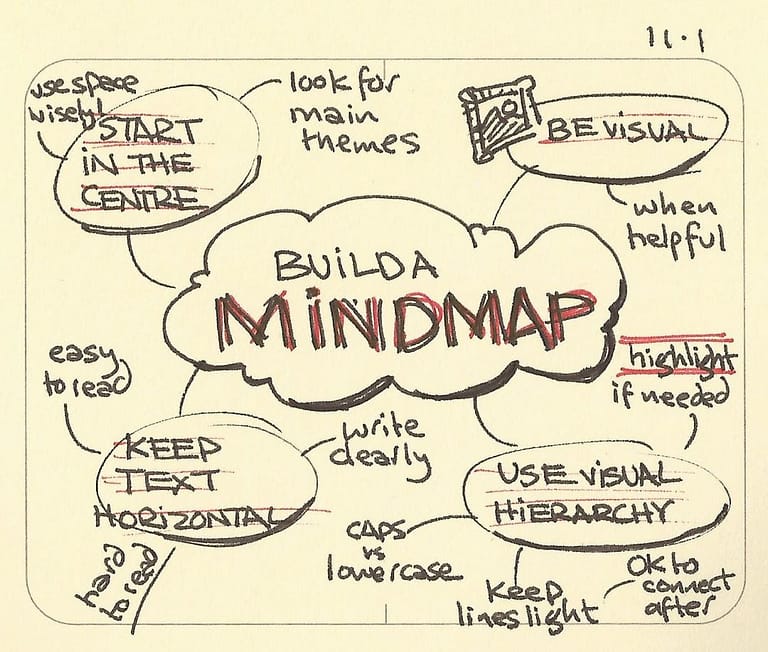 11.1
use space
wisely!
START
IN THE
CENTRE
look for
main
themes
BE VISUAL
when
helpful
BUILD A
MINDMAP
easy
to read
KEEP
TEXT
HORIZONTAL
write
clearly
hard
to read
highlight
if needed
USE VISUAL
HIERARCHY
CAPS
vs
lowercase
keep
lines light
OK to
connect
after